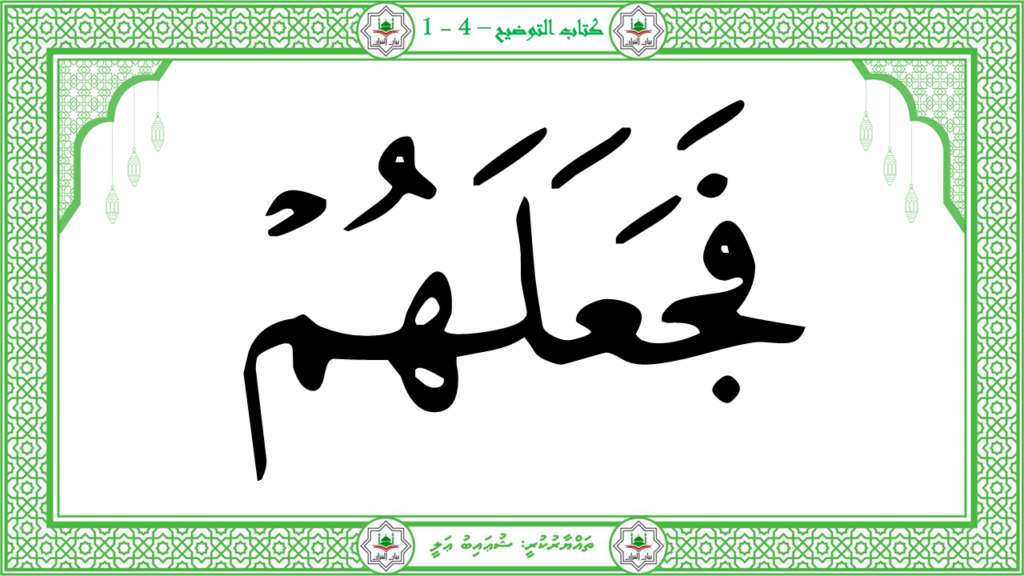 كتاب التوضيح – 4 - 1
فَجَعَلَهُمْ
ތައްޔާރުކުރީ: ޝުޢައިބު ޢަލީ